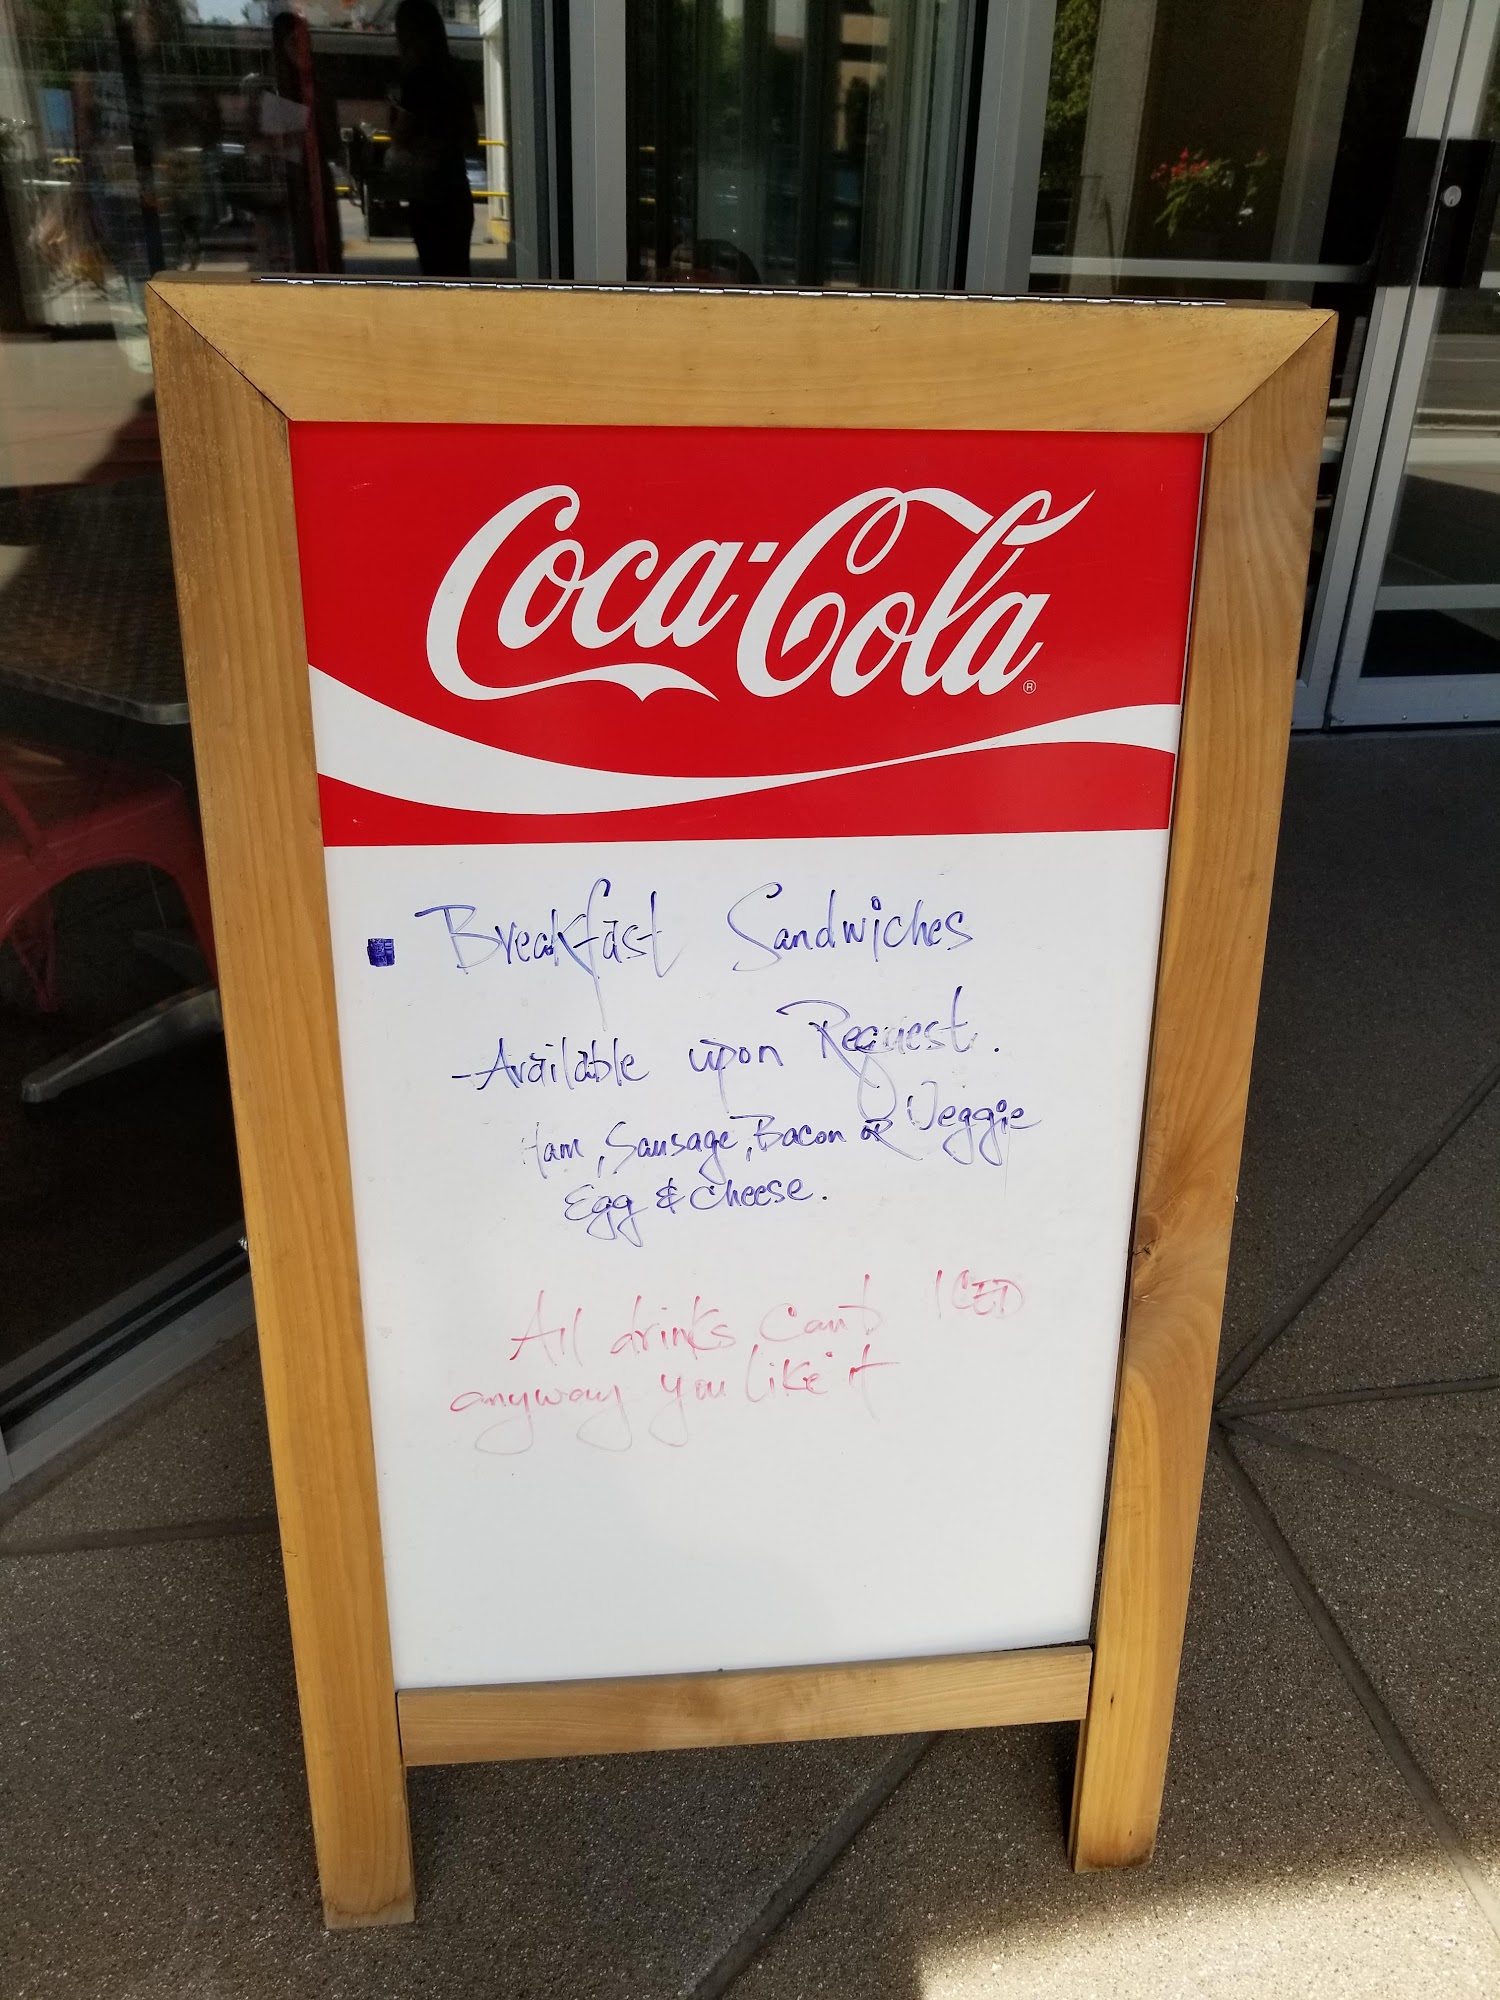 Coca-Cola ®
Breakfast Sandwiches
- Available upon Request.
Ham, Sausage, Bacon OR Veggie
Egg & cheese.
All drinks Can b ICED
anyway you like it